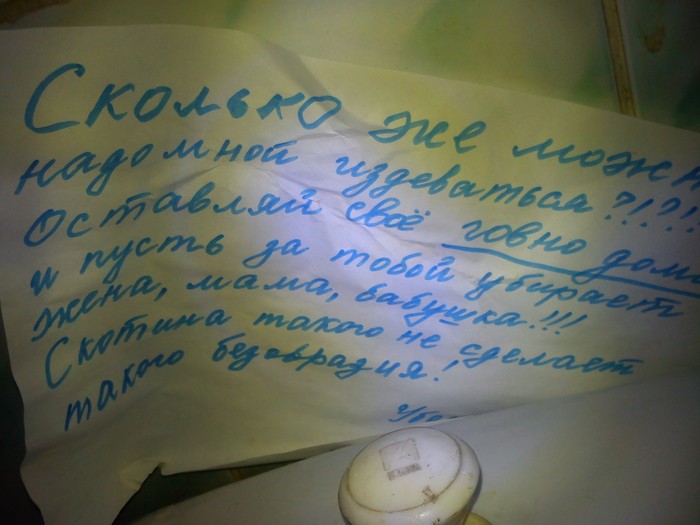 Сколько же можн
надомной издеваться?!?!!
Оставляй своё говно дома
и пусть за тобой убирает
жена, мама, бабушка!!!
Скотина такого не сделает
такого безовразия!